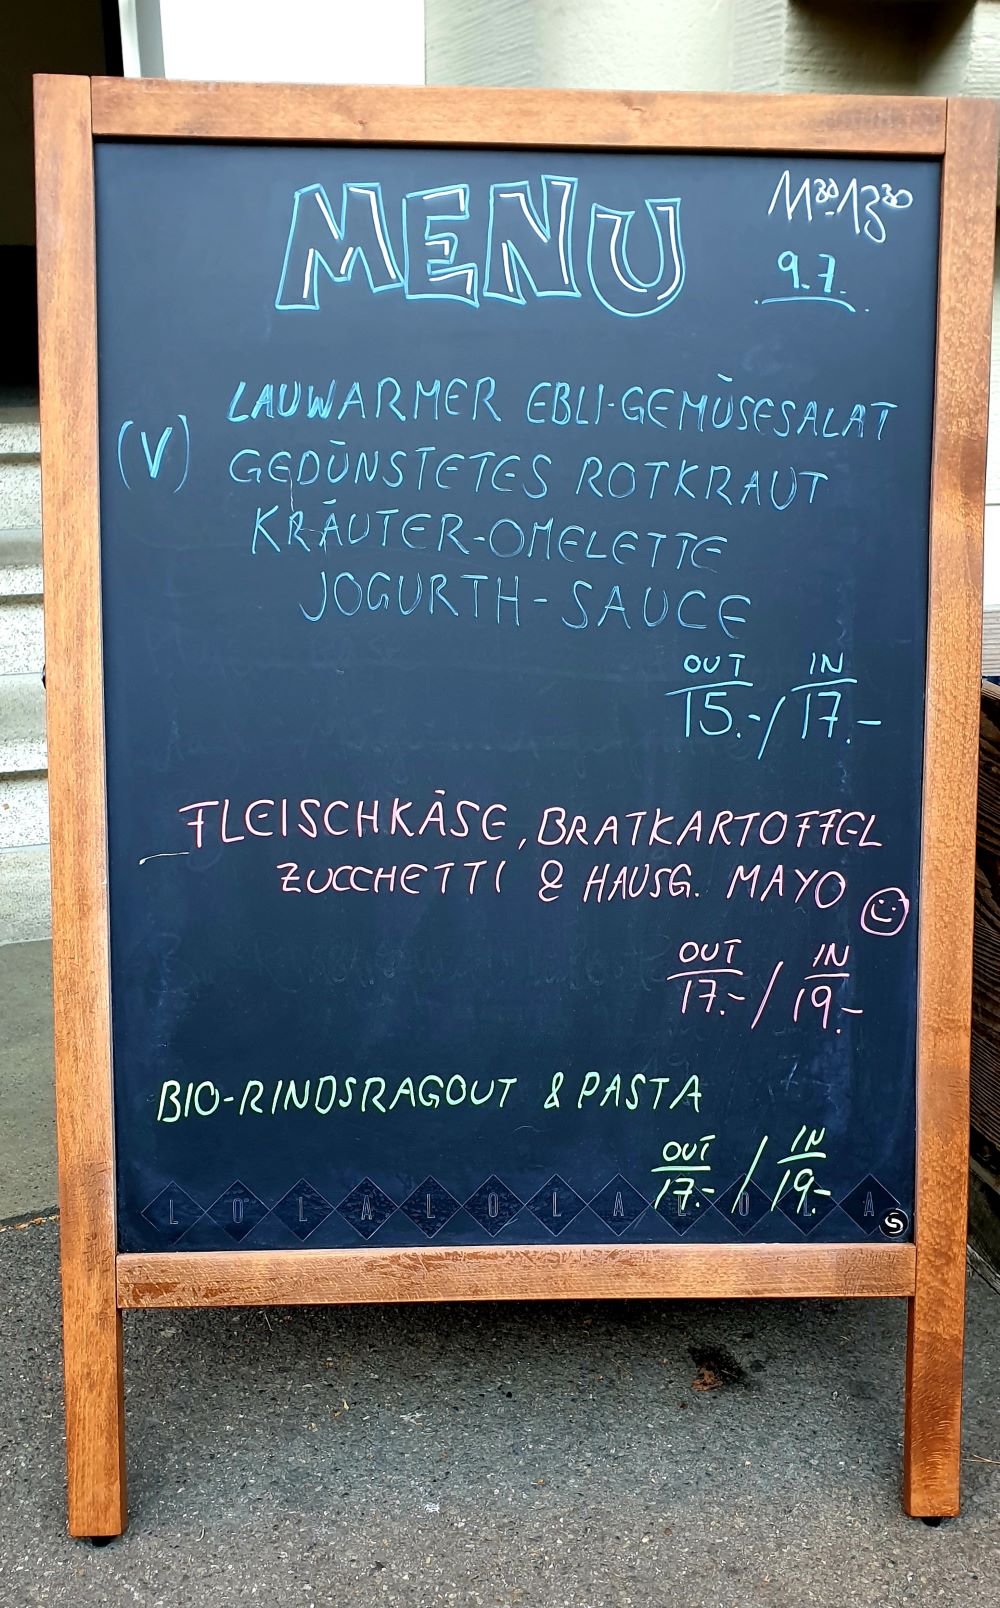 MENU
11³⁰-13³⁰
9.7.
LAUWARMER EBLI-GEMÜSESALAT
(V) GEDÜNSTETES ROTKRAUT
KRÄUTER-OMELETTE
JOGURTH-SAUCE
OUT / IN
15.- / 17.-
FLEISCHKÄSE, BRATKARTOFFEL
ZUCCHETTI & HAUSG. MAYO
OUT / IN
17.- / 19.-
BIO-RINDSRAGOUT & PASTA
OUT / IN
17.- / 19.-
LOLALOLALOLA
S